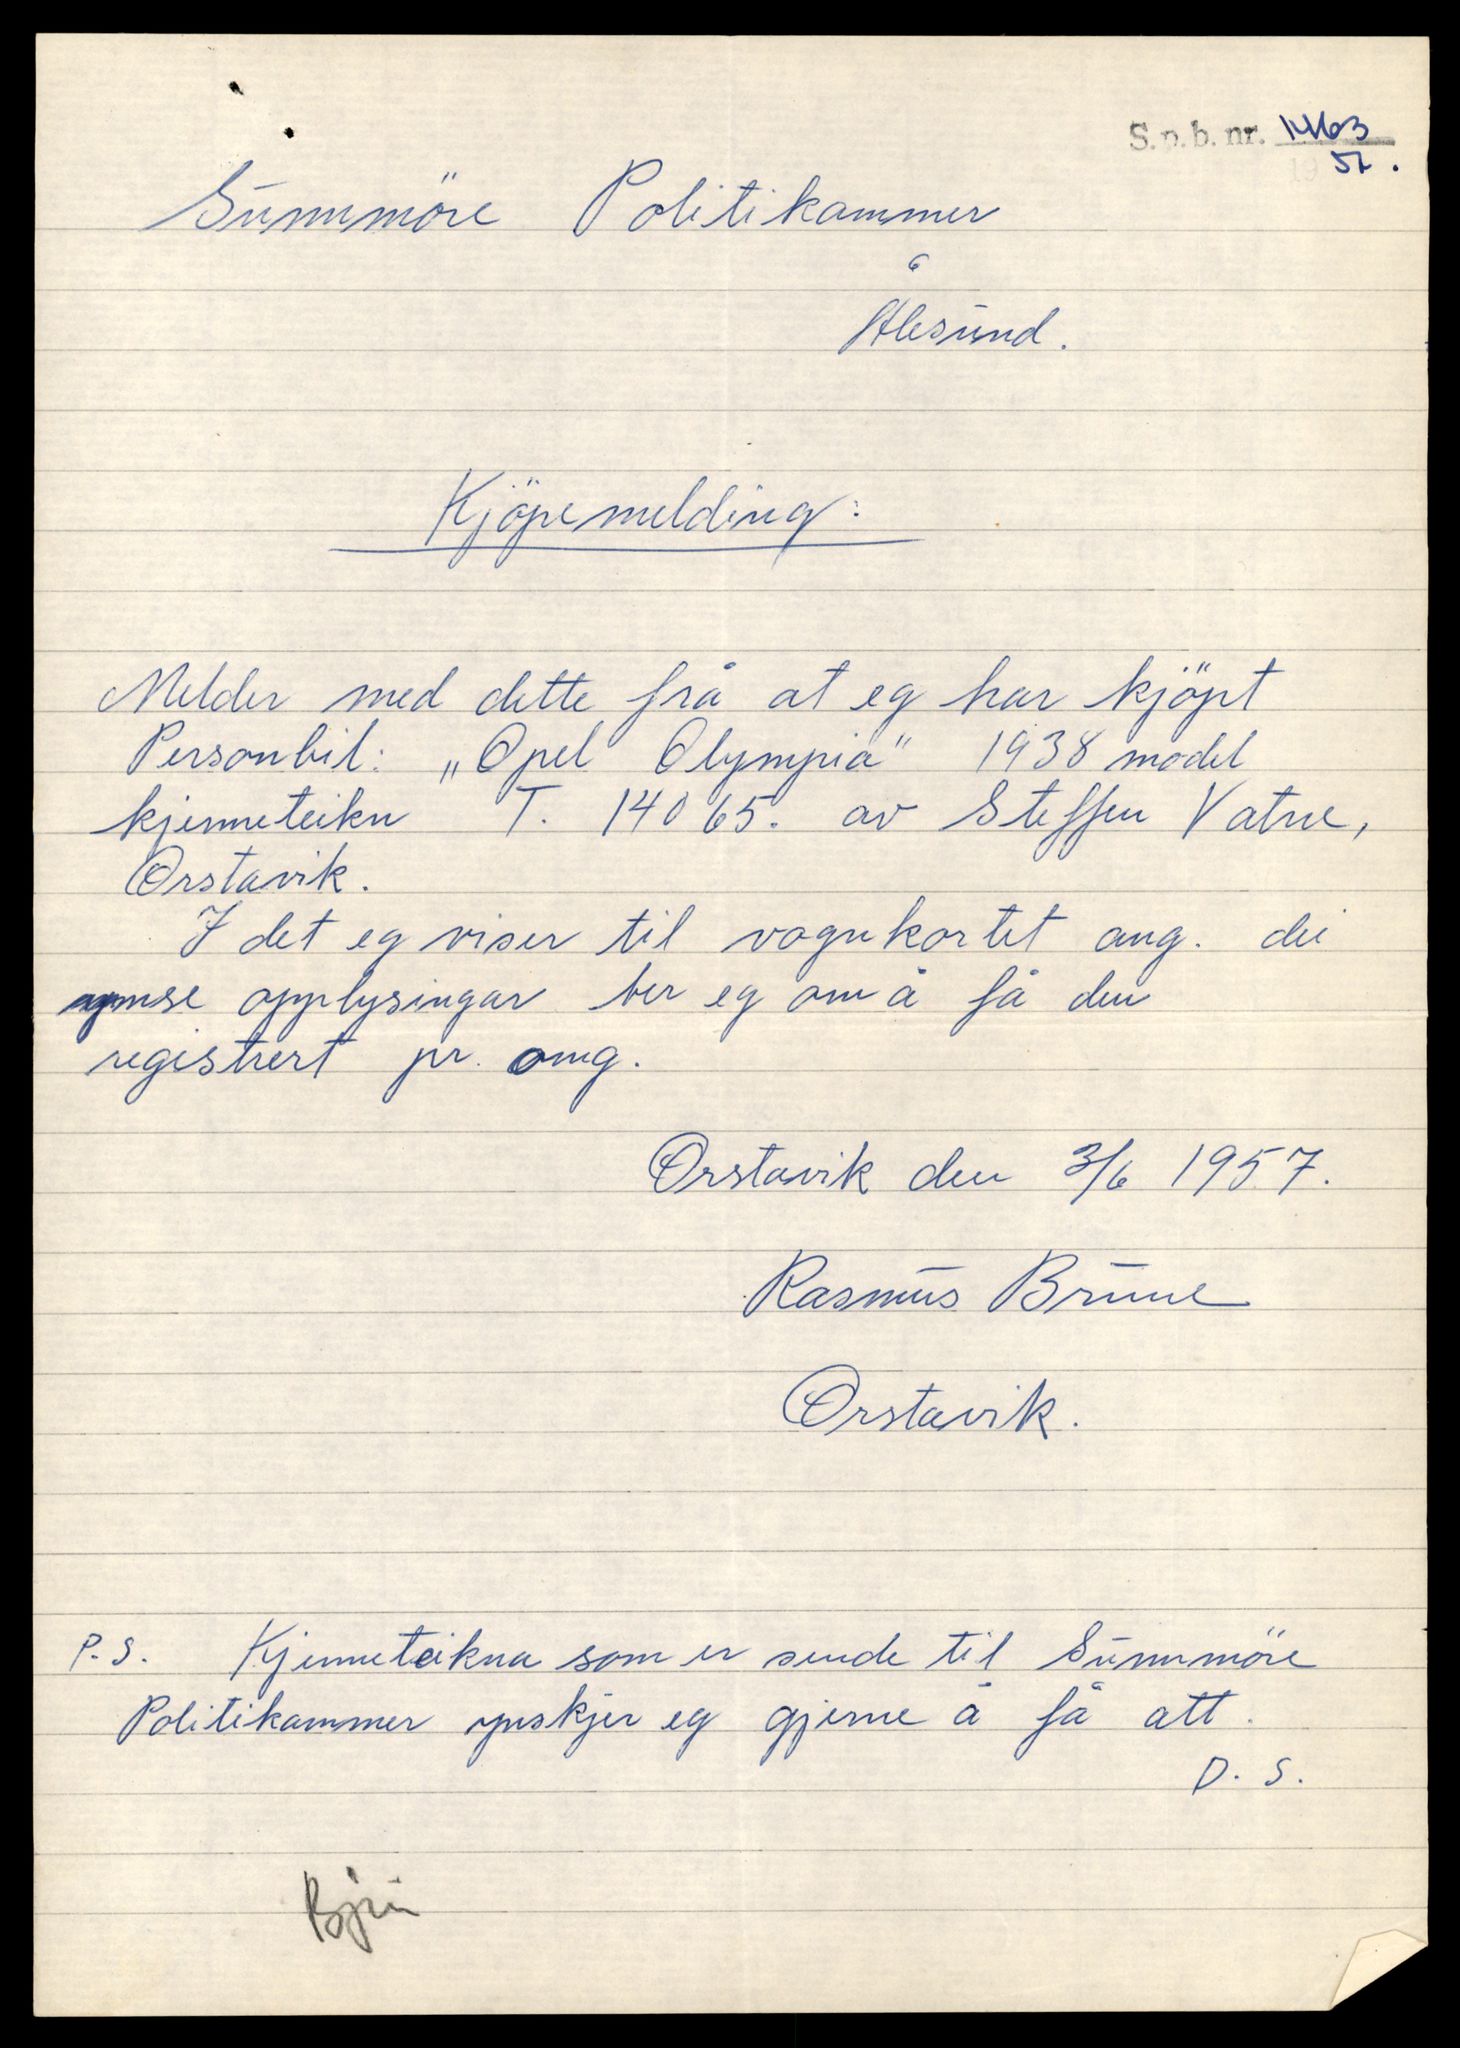 S.p.b. nr. 1463
1957.
Sunnmöre Politikammer
Ålesund.
Kjöpemelding:
Melder med dette frå at eg har kjöpt
Personbil: „Opel Olympia" 1938 model
kjenneteikn T. 14065. av Steffen Vatne,
Örstavik.
I det eg viser til vognkortet ang. dei
ymse opplysingar ber eg om å få den
registrert pr. omg.
Örstavik den 3/6 1957.
Rasmus Brune
Örstavik.
P.S. Kjenneteikna som er sende til Sunnmöre
Politikammer ynskjer eg gjerne å få att.
D. S.